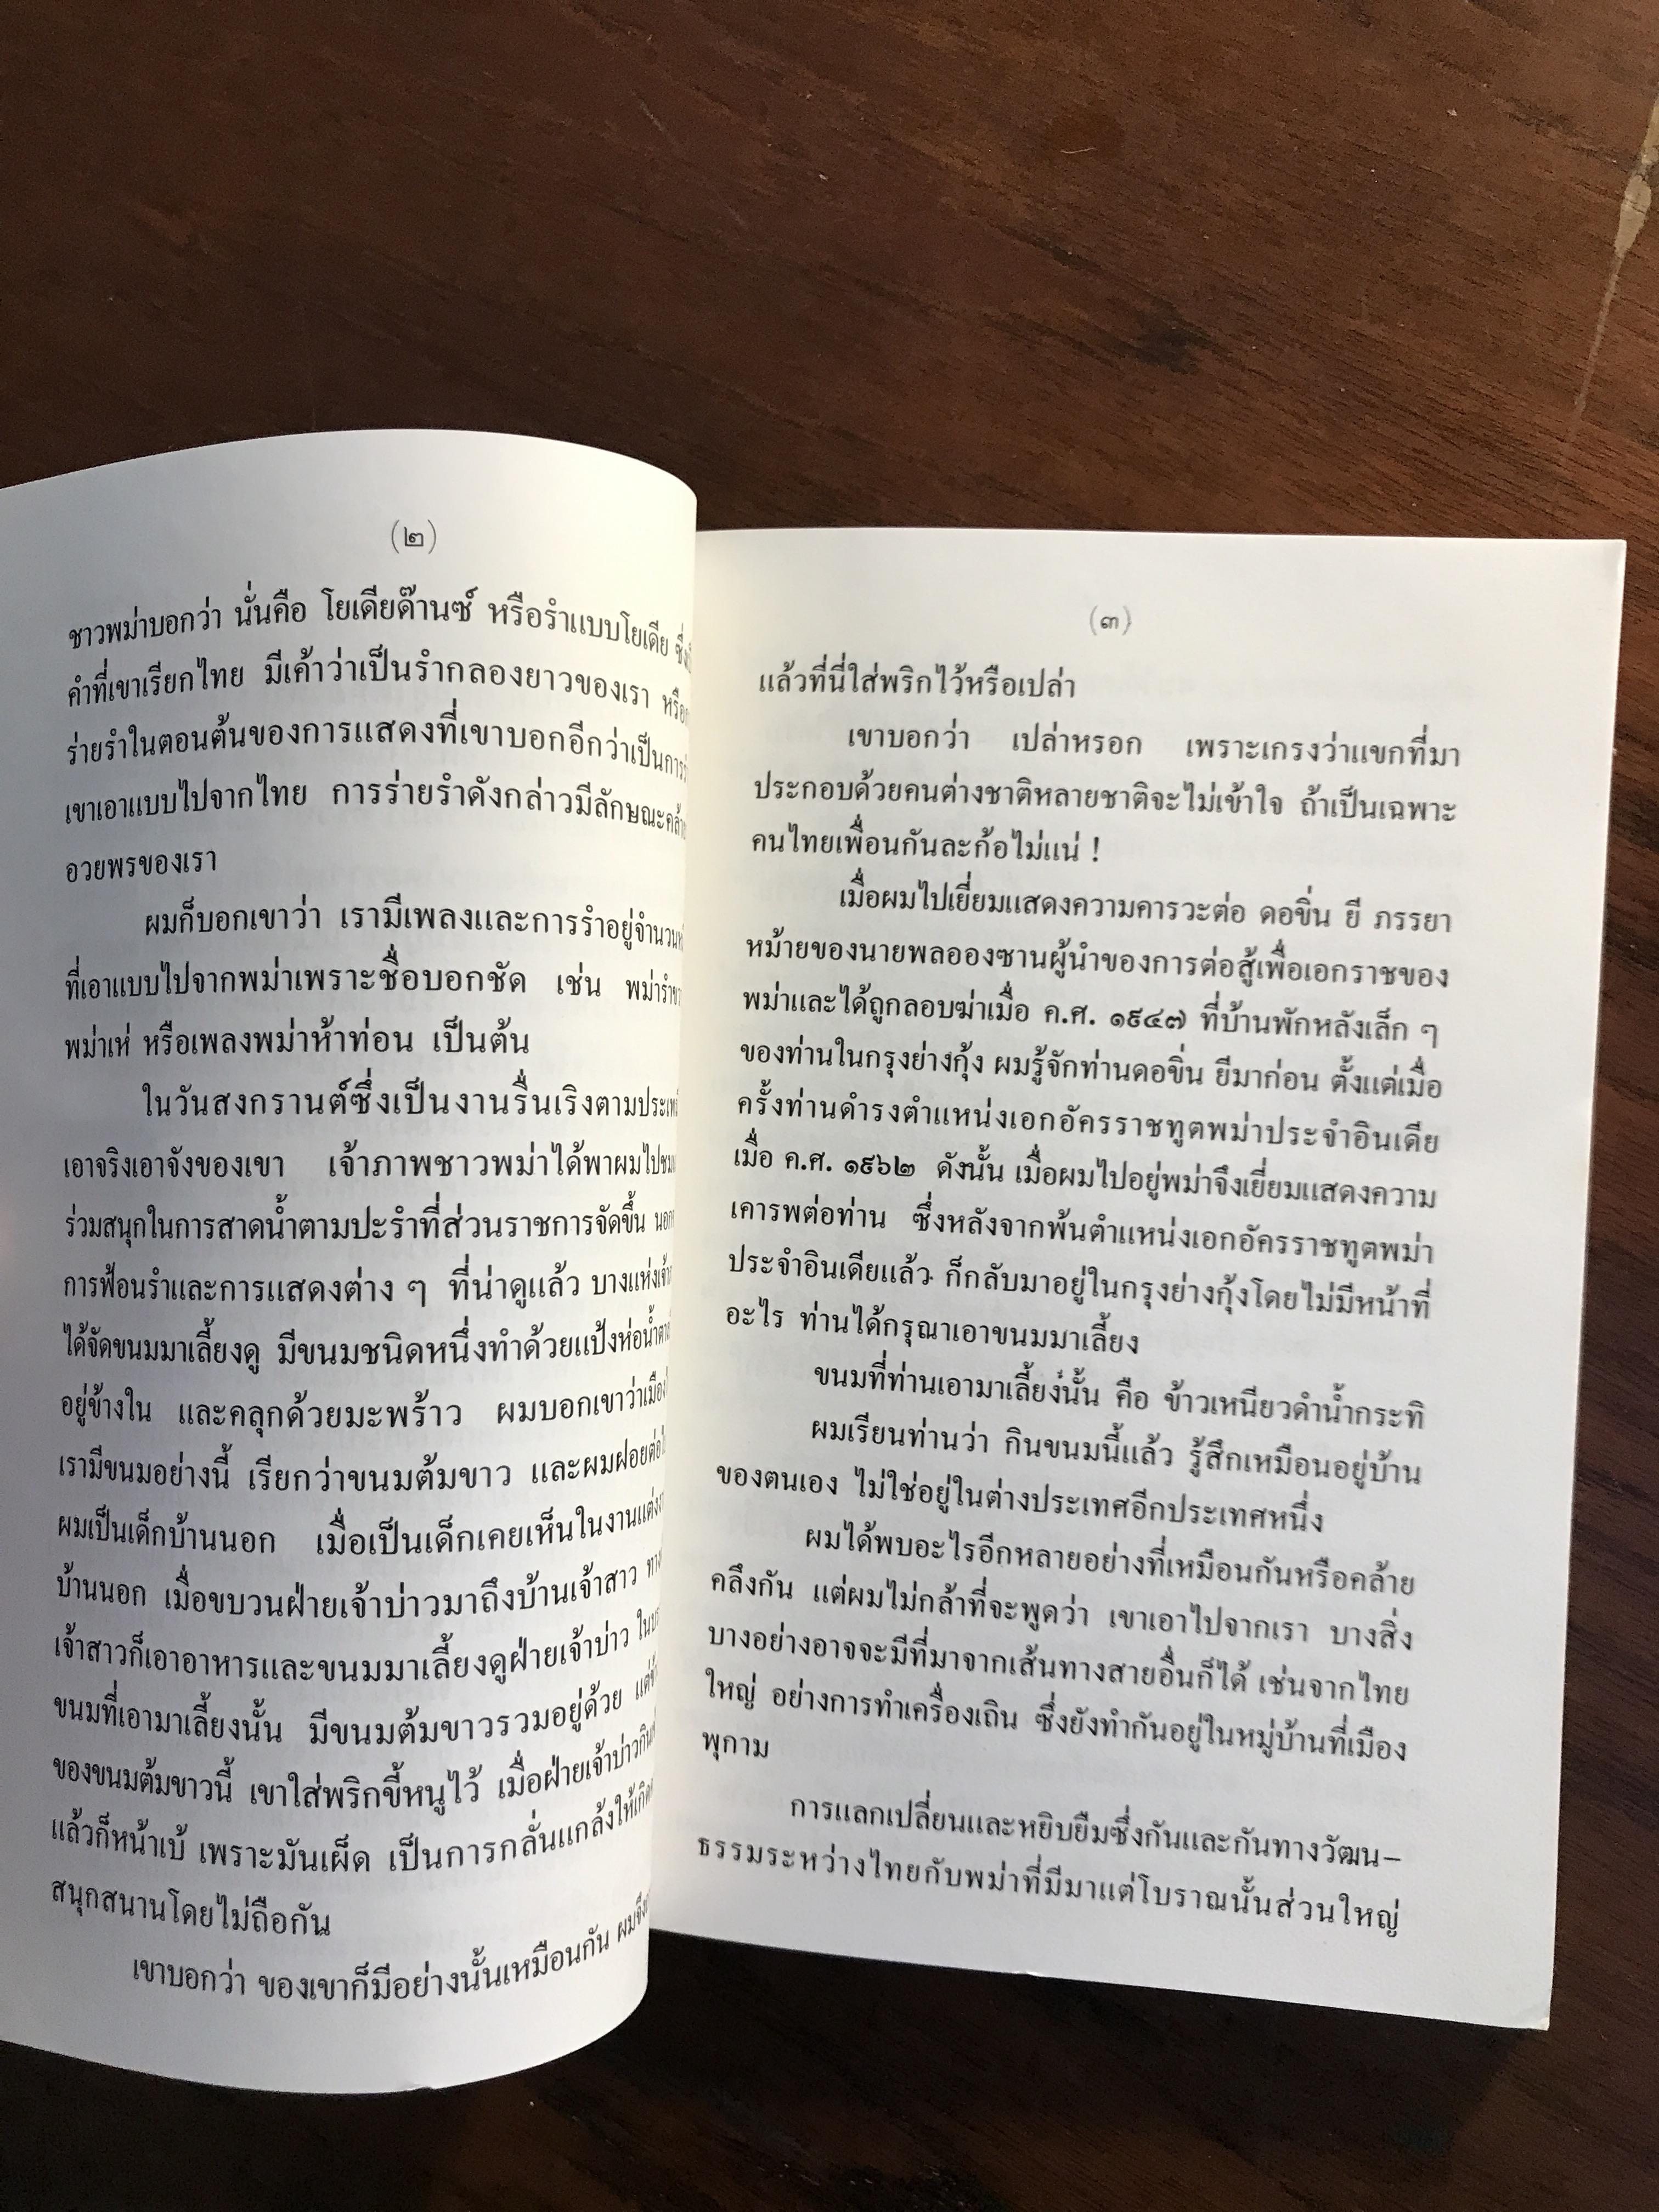 (๒)
ชาวพม่าบอกว่า นั่นคือ โยเดียด๊านซ์ หรือรำแบบโยเดีย
คำที่เขาเรียกไทย มีเค้าว่าเป็นรำกลองยาวของเรา
ร่ายรำในตอนต้นของการแสดงที่เขาบอกอีกว่าเป็นการ
เขาเอาแบบไปจากไทย การร่ายรำดังกล่าวมีลักษณะ
อวยพรของเรา
ผมก็บอกเขาว่า เรามีเพลงและการรำอยู่
ที่เอาแบบไปจากพม่าเพราะชื่อบอกชัด เช่น
พม่าเห่ หรือเพลงพม่าห้าท่อน เป็นต้น
ในวันสงกรานต์ซึ่งเป็นงานรื่นเริงตาม
เอาจริงเอาจังของเขา เจ้าภาพชาวพม่าได้พาผมไป
ร่วมสนุกในการสาดน้ำตามปะรำที่ส่วนราชการจัดขึ้น
การฟ้อนรำและการแสดงต่าง ๆ ที่น่าดูแล้ว บางแห่ง
ได้จัดขนมมาเลี้ยงดู มีขนมชนิดหนึ่งทำด้วยแป้งห่อ
อยู่ข้างใน และคลุกด้วยมะพร้าว ผมบอกเขาว่า
เรามีขนมอย่างนี้ เรียกว่าขนมต้มขาว และผมฝอย
ผมเป็นเด็กบ้านนอก เมื่อเป็นเด็กเคยเห็นในงาน
บ้านนอก เมื่อขบวนฝ่ายเจ้าบ่าวมาถึงบ้านเจ้าสาว
เจ้าสาวก็เอาอาหารและขนมมาเลี้ยงดูฝ่ายเจ้าบ่าว
ขนมที่เอามาเลี้ยงนั้น มีขนมต้มขาวรวมอยู่ด้วย
ของขนมต้มขาวนี้ เขาใส่พริกขี้หนูไว้ เมื่อฝ่ายเจ้าบ่าว
แล้วก็หน้าเบ้ เพราะมันเผ็ด เป็นการกลั่นแกล้งให้
สนุกสนานโดยไม่ถือกัน
เขาบอกว่า ของเขาก็มีอย่างนั้นเหมือนกัน
(๓)
แล้วที่นี่ใส่พริกไว้หรือเปล่า
เขาบอกว่า เปล่าหรอก เพราะเกรงว่าแขกที่มา
ประกอบด้วยคนต่างชาติหลายชาติจะไม่เข้าใจ ถ้าเป็นเฉพาะ
คนไทยเพื่อนกันละก้อไม่แน่ !
เมื่อผมไปเยี่ยมแสดงความคารวะต่อ ดอขิ่น ยี ภรรยา
หม้ายของนายพลอองซานผู้นำของการต่อสู้เพื่อเอกราชของ
พม่าและได้ถูกลอบฆ่าเมื่อ ค.ศ. ๑๙๔๗ ที่บ้านพักหลังเล็ก ๆ
ของท่านในกรุงย่างกุ้ง ผมรู้จักท่านดอขิ่น ยีมาก่อน ตั้งแต่เมื่อ
ครั้งท่านดำรงตำแหน่งเอกอัครราชทูตพม่าประจำอินเดีย
เมื่อ ค.ศ. ๑๙๖๒ ดังนั้น เมื่อผมไปอยู่พม่าจึงเยี่ยมแสดงความ
เคารพต่อท่าน ซึ่งหลังจากพ้นตำแหน่งเอกอัครราชทูตพม่า
ประจำอินเดียแล้ว ก็กลับมาอยู่ในกรุงย่างกุ้งโดยไม่มีหน้าที่
อะไร ท่านได้กรุณาเอาขนมมาเลี้ยง
ขนมที่ท่านเอามาเลี้ยงนั้น คือ ข้าวเหนียวดำน้ำกระทิ
ผมเรียนท่านว่า กินขนมนี้แล้ว รู้สึกเหมือนอยู่บ้าน
ของตนเอง ไม่ใช่อยู่ในต่างประเทศอีกประเทศหนึ่ง
ผมได้พบอะไรอีกหลายอย่างที่เหมือนกันหรือคล้าย
คลึงกัน แต่ผมไม่กล้าที่จะพูดว่า เขาเอาไปจากเรา บางสิ่ง
บางอย่างอาจจะมีที่มาจากเส้นทางสายอื่นก็ได้ เช่นจากไทย
ใหญ่ อย่างการทำเครื่องเถิน ซึ่งยังทำกันอยู่ในหมู่บ้านที่เมือง
พุกาม
การแลกเปลี่ยนและหยิบยืมซึ่งกันและกันทางวัฒน–
ธรรมระหว่างไทยกับพม่าที่มีมาแต่โบราณนั้นส่วนใหญ่